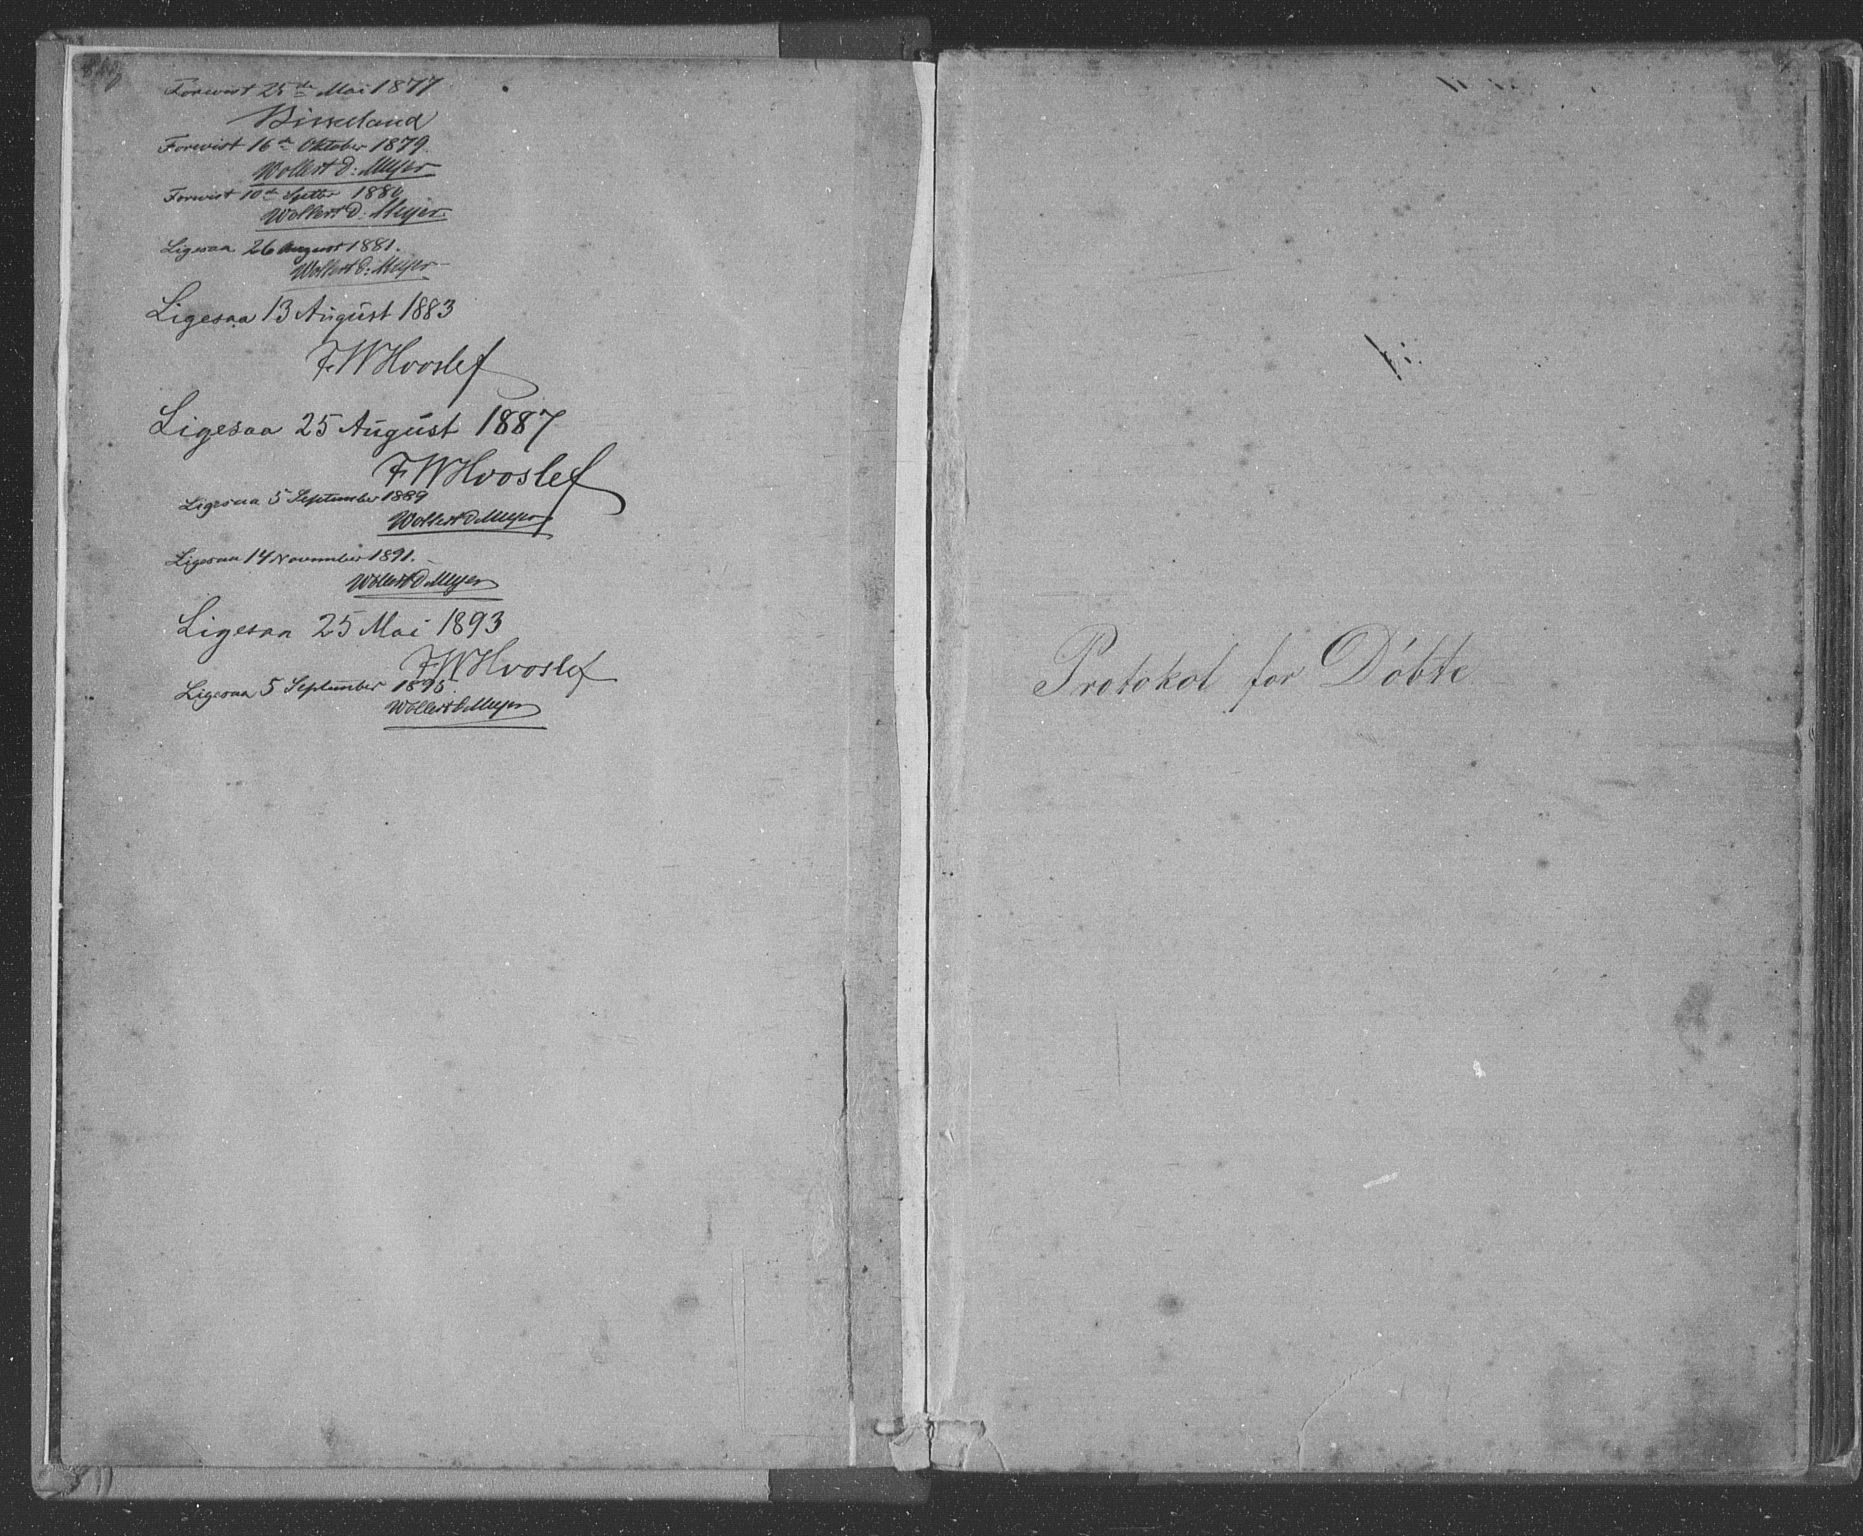 Forevist 25de Mai 1877
Forevist 16de Oktober 1879.
Wollert D: Meyer
Forevist 10de Septbr 1880
Wollert D: Meyer.
Ligesaa 26 August 1881.
Wollert D: Meyer
Ligesaa 13 August 1883
F. W Hvoslef
Ligesaa 25 August 1887
F. W Hvoslef
Ligesaa 5 September 1889
Wollert D Meyer
Ligesaa 14 November 1891.
Wollert D. Meyer
Ligesaa 25 Mai 1893
F. W Hvoslef
Ligesaa 5 September 1895.
Wollert D. Meyer
Protokol for Døbte